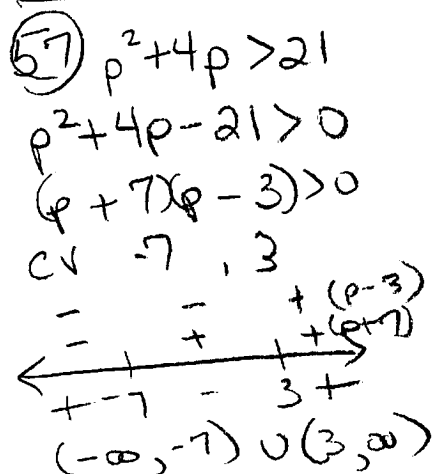 57 p²+4p>21
p²+4p-21>0
(p+7)(p-3)>0
CV -7, 3
- - + (p-3)
- + + (p+7)
+ -7 - 3 +
(-∞,-7) ∪ (3,∞)